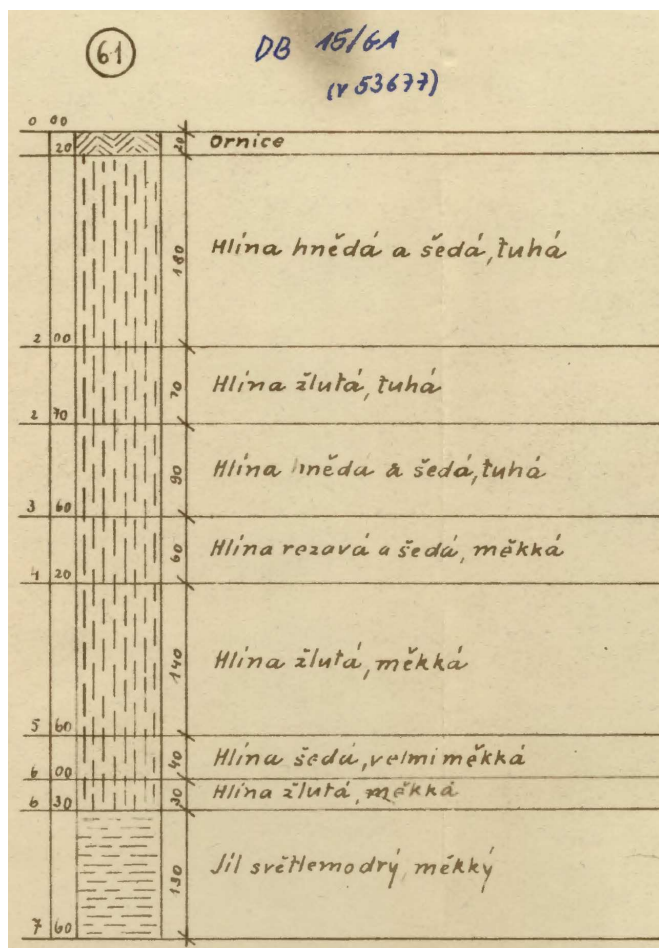 61
DB 15/6A
(v 53677)
0 00
20 20 Ornice
180 Hlína hnědá a šedá, tuhá
2 00
70 Hlína žlutá, tuhá
2 70
90 Hlína hnědá a šedá, tuhá
3 60
60 Hlína rezavá a šedá, měkká
4 20
140 Hlína žlutá, měkká
5 60
40 Hlína šedá, velmi měkká
6 00
30 Hlína žlutá, měkká
6 30
130 Jíl světlemodrý, měkký
7 60